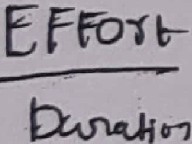 Effort
Duration